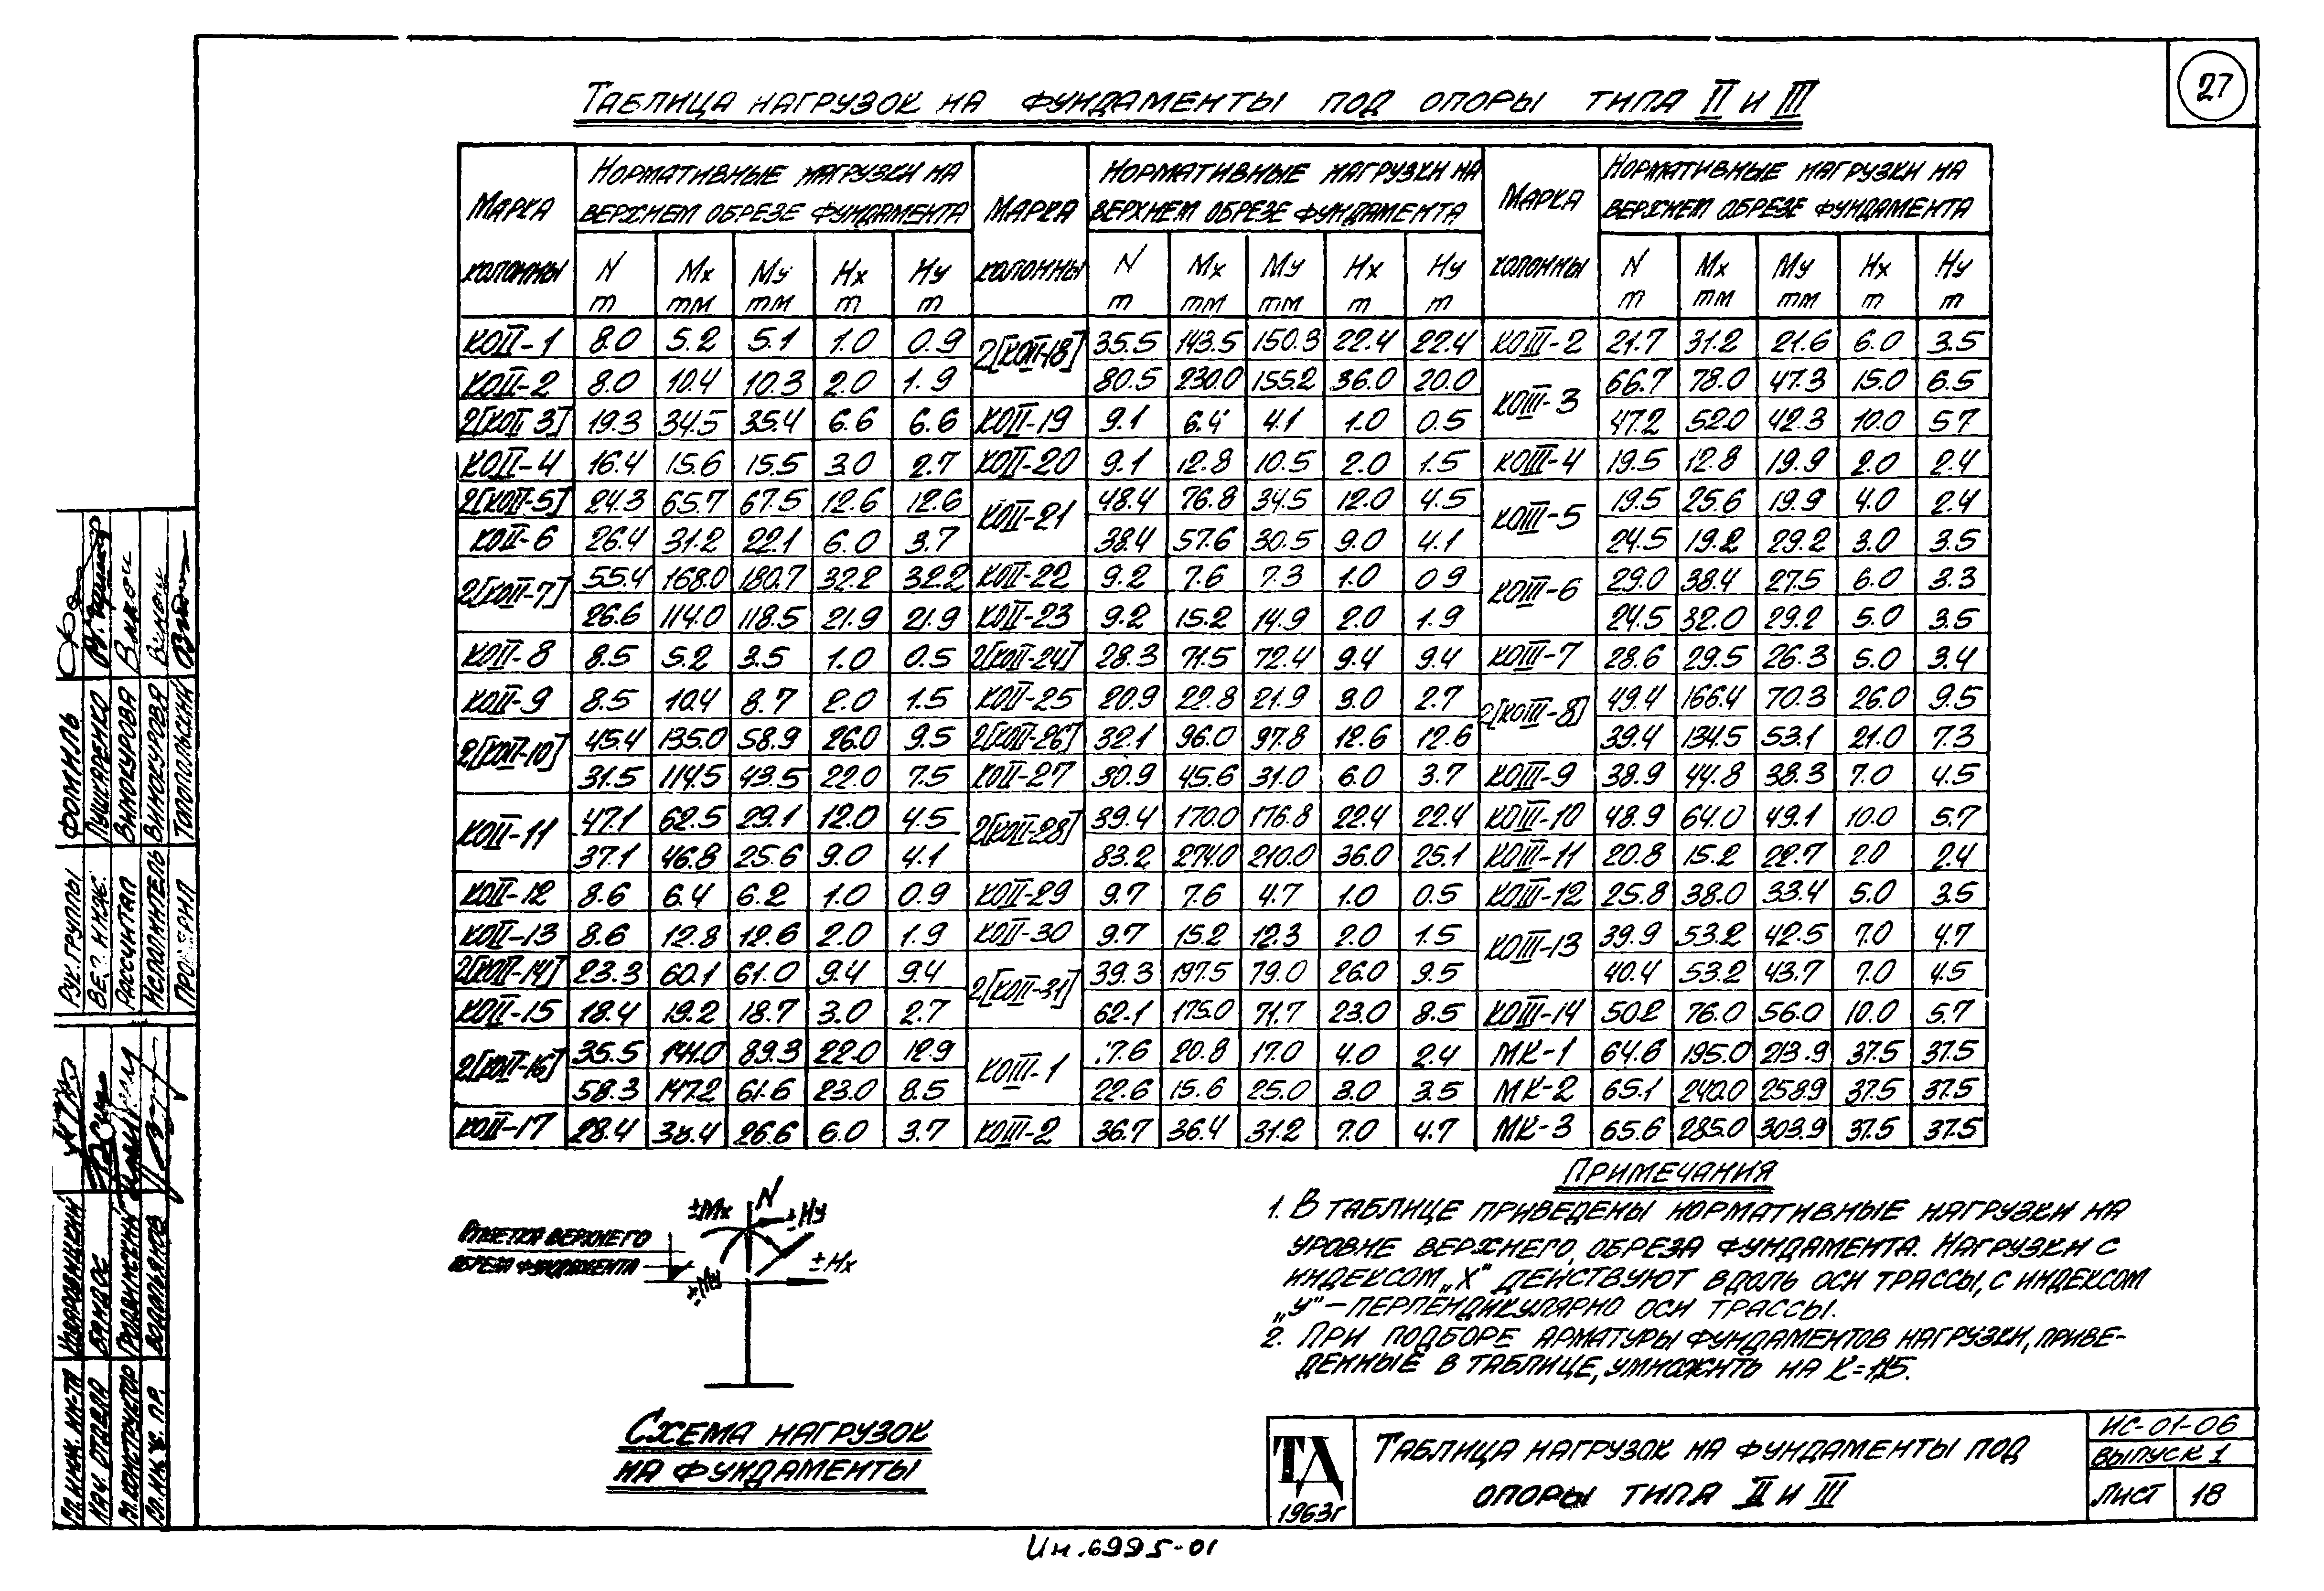 27
ТАБЛИЦА НАГРУЗОК НА ФУНДАМЕНТЫ ПОД ОПОРЫ ТИПА II И III
МАРКА КОЛОННЫ НОРМАТИВНЫЕ НАГРУЗКИ НА ВЕРХНЕМ ОБРЕЗЕ ФУНДАМЕНТА МАРКА КОЛОННЫ НОРМАТИВНЫЕ НАГРУЗКИ НА ВЕРХНЕМ ОБРЕЗЕ ФУНДАМЕНТА МАРКА КОЛОННЫ НОРМАТИВНЫЕ НАГРУЗКИ НА ВЕРХНЕМ ОБРЕЗЕ ФУНДАМЕНТА
N Mx My Hx Hy N Mx My Hx Hy N Mx My Hx Hy
т тм тм т т т тм тм т т т тм тм т т
КОII-1 8.0 5.2 5.1 1.0 0.9 2[КОII-18] 35.5 143.5 150.3 22.4 22.4 КОIII-2 21.7 31.2 21.6 6.0 3.5
КОII-2 8.0 10.4 10.3 2.0 1.9 80.5 230.0 155.2 36.0 20.0 КОIII-3 66.7 78.0 47.3 15.0 6.5
2[КОII 3] 19.3 34.5 35.4 6.6 6.6 КОII-19 9.1 6.4 4.1 1.0 0.5 47.2 52.0 42.3 10.0 5.7
КОII-4 16.4 15.6 15.5 3.0 2.7 КОII-20 9.1 12.8 10.5 2.0 1.5 КОIII-4 19.5 12.8 19.9 2.0 2.4
2[КОII-5] 24.3 65.7 67.5 12.6 12.6 КОII-21 48.4 76.8 34.5 12.0 4.5 КОIII-5 19.5 25.6 19.9 4.0 2.4
КОII-6 26.4 31.2 22.1 6.0 3.7 38.4 57.6 30.5 9.0 4.1 24.5 19.2 29.2 3.0 3.5
2[КОII-7] 55.4 168.0 180.7 32.2 32.2 КОII-22 9.2 7.6 7.3 1.0 0.9 КОIII-6 29.0 38.4 27.5 6.0 3.3
26.6 114.0 118.5 21.9 21.9 КОII-23 9.2 15.2 14.9 2.0 1.9 24.5 32.0 29.2 5.0 3.5
КОII-8 8.5 5.2 3.5 1.0 0.5 2[КОII-24] 28.3 71.5 72.4 9.4 9.4 КОIII-7 28.6 29.5 26.3 5.0 3.4
КОII-9 8.5 10.4 8.7 2.0 1.5 КОII-25 20.9 22.8 21.9 3.0 2.7 2[КОIII-8] 49.4 166.4 70.3 26.0 9.5
2[КОII-10] 45.4 135.0 58.9 26.0 9.5 2[КОII-26] 32.1 96.0 97.8 12.6 12.6 39.4 134.5 53.1 21.0 7.3
31.5 114.5 43.5 22.0 7.5 КОII-27 30.9 45.6 31.0 6.0 3.7 КОIII-9 38.9 44.8 38.3 7.0 4.5
КОII-11 47.1 62.5 29.1 12.0 4.5 2[КОII-28] 39.4 170.0 176.8 22.4 22.4 КОIII-10 48.9 64.0 49.1 10.0 5.7
37.1 46.8 25.6 9.0 4.1 83.2 274.0 210.0 36.0 25.1 КОIII-11 20.8 15.2 22.7 2.0 2.4
КОII-12 8.6 6.4 6.2 1.0 0.9 КОII-29 9.7 7.6 4.7 1.0 0.5 КОIII-12 25.8 38.0 33.4 5.0 3.5
КОII-13 8.6 12.8 12.6 2.0 1.9 КОII-30 9.7 15.2 12.3 2.0 1.5 КОIII-13 39.9 53.2 42.5 7.0 4.7
2[КОII-14] 23.3 60.1 61.0 9.4 9.4 2[КОII-31] 39.3 197.5 79.0 26.0 9.5 40.4 53.2 43.7 7.0 4.5
КОII-15 18.4 19.2 18.7 3.0 2.7 62.1 175.0 71.7 23.0 8.5 КОIII-14 50.2 76.0 56.0 10.0 5.7
2[КОII-16] 35.5 141.0 89.3 22.0 12.9 КОIII-1 .7.6 20.8 17.0 4.0 2.4 МК-1 64.6 195.0 213.9 37.5 37.5
58.3 147.2 61.6 23.0 8.5 22.6 15.6 25.0 3.0 3.5 МК-2 65.1 240.0 258.9 37.5 37.5
КОII-17 28.4 38.4 26.6 6.0 3.7 КОIII-2 36.7 36.4 31.2 7.0 4.7 МК-3 65.6 285.0 303.9 37.5 37.5
±Mx N ±Hy
ОТМЕТКА ВЕРХНЕГО
ОБРЕЗА ФУНДАМЕНТА
±My ±Hx
СХЕМА НАГРУЗОК
НА ФУНДАМЕНТЫ
ПРИМЕЧАНИЯ
1. В ТАБЛИЦЕ ПРИВЕДЕНЫ НОРМАТИВНЫЕ НАГРУЗКИ НА
УРОВНЕ ВЕРХНЕГО ОБРЕЗА ФУНДАМЕНТА. НАГРУЗКИ С
ИНДЕКСОМ „X" ДЕЙСТВУЮТ ВДОЛЬ ОСИ ТРАССЫ, С ИНДЕКСОМ
„У"-ПЕРПЕНДИКУЛЯРНО ОСИ ТРАССЫ.
2. ПРИ ПОДБОРЕ АРМАТУРЫ ФУНДАМЕНТОВ НАГРУЗКИ, ПРИВЕ-
ДЕННЫЕ В ТАБЛИЦЕ, УМНОЖИТЬ НА К=1,15.
ТД
1963г
ТАБЛИЦА НАГРУЗОК НА ФУНДАМЕНТЫ ПОД
ОПОРЫ ТИПА II И III
ИС-01-06
ВЫПУСК 1
ЛИСТ 18
Ин.6995-01
РУК. ГРУППЫ ФОМИЛЬ
ВЕД. ИНЖ. ПУШКАРЕНКО
РАССЧИТАЛ ВИНОКУРОВА
ИСПОЛНИТЕЛЬ ВИНОКУРОВА
ПРОВЕРИЛ ТОПОПОЛЬСКИЙ
ГЛ. ИНЖ. ИН-ТА
НАЧ. ОТДЕЛА
ГЛ. КОНСТРУКТОР
ГЛ. ИНЖ. ПР.